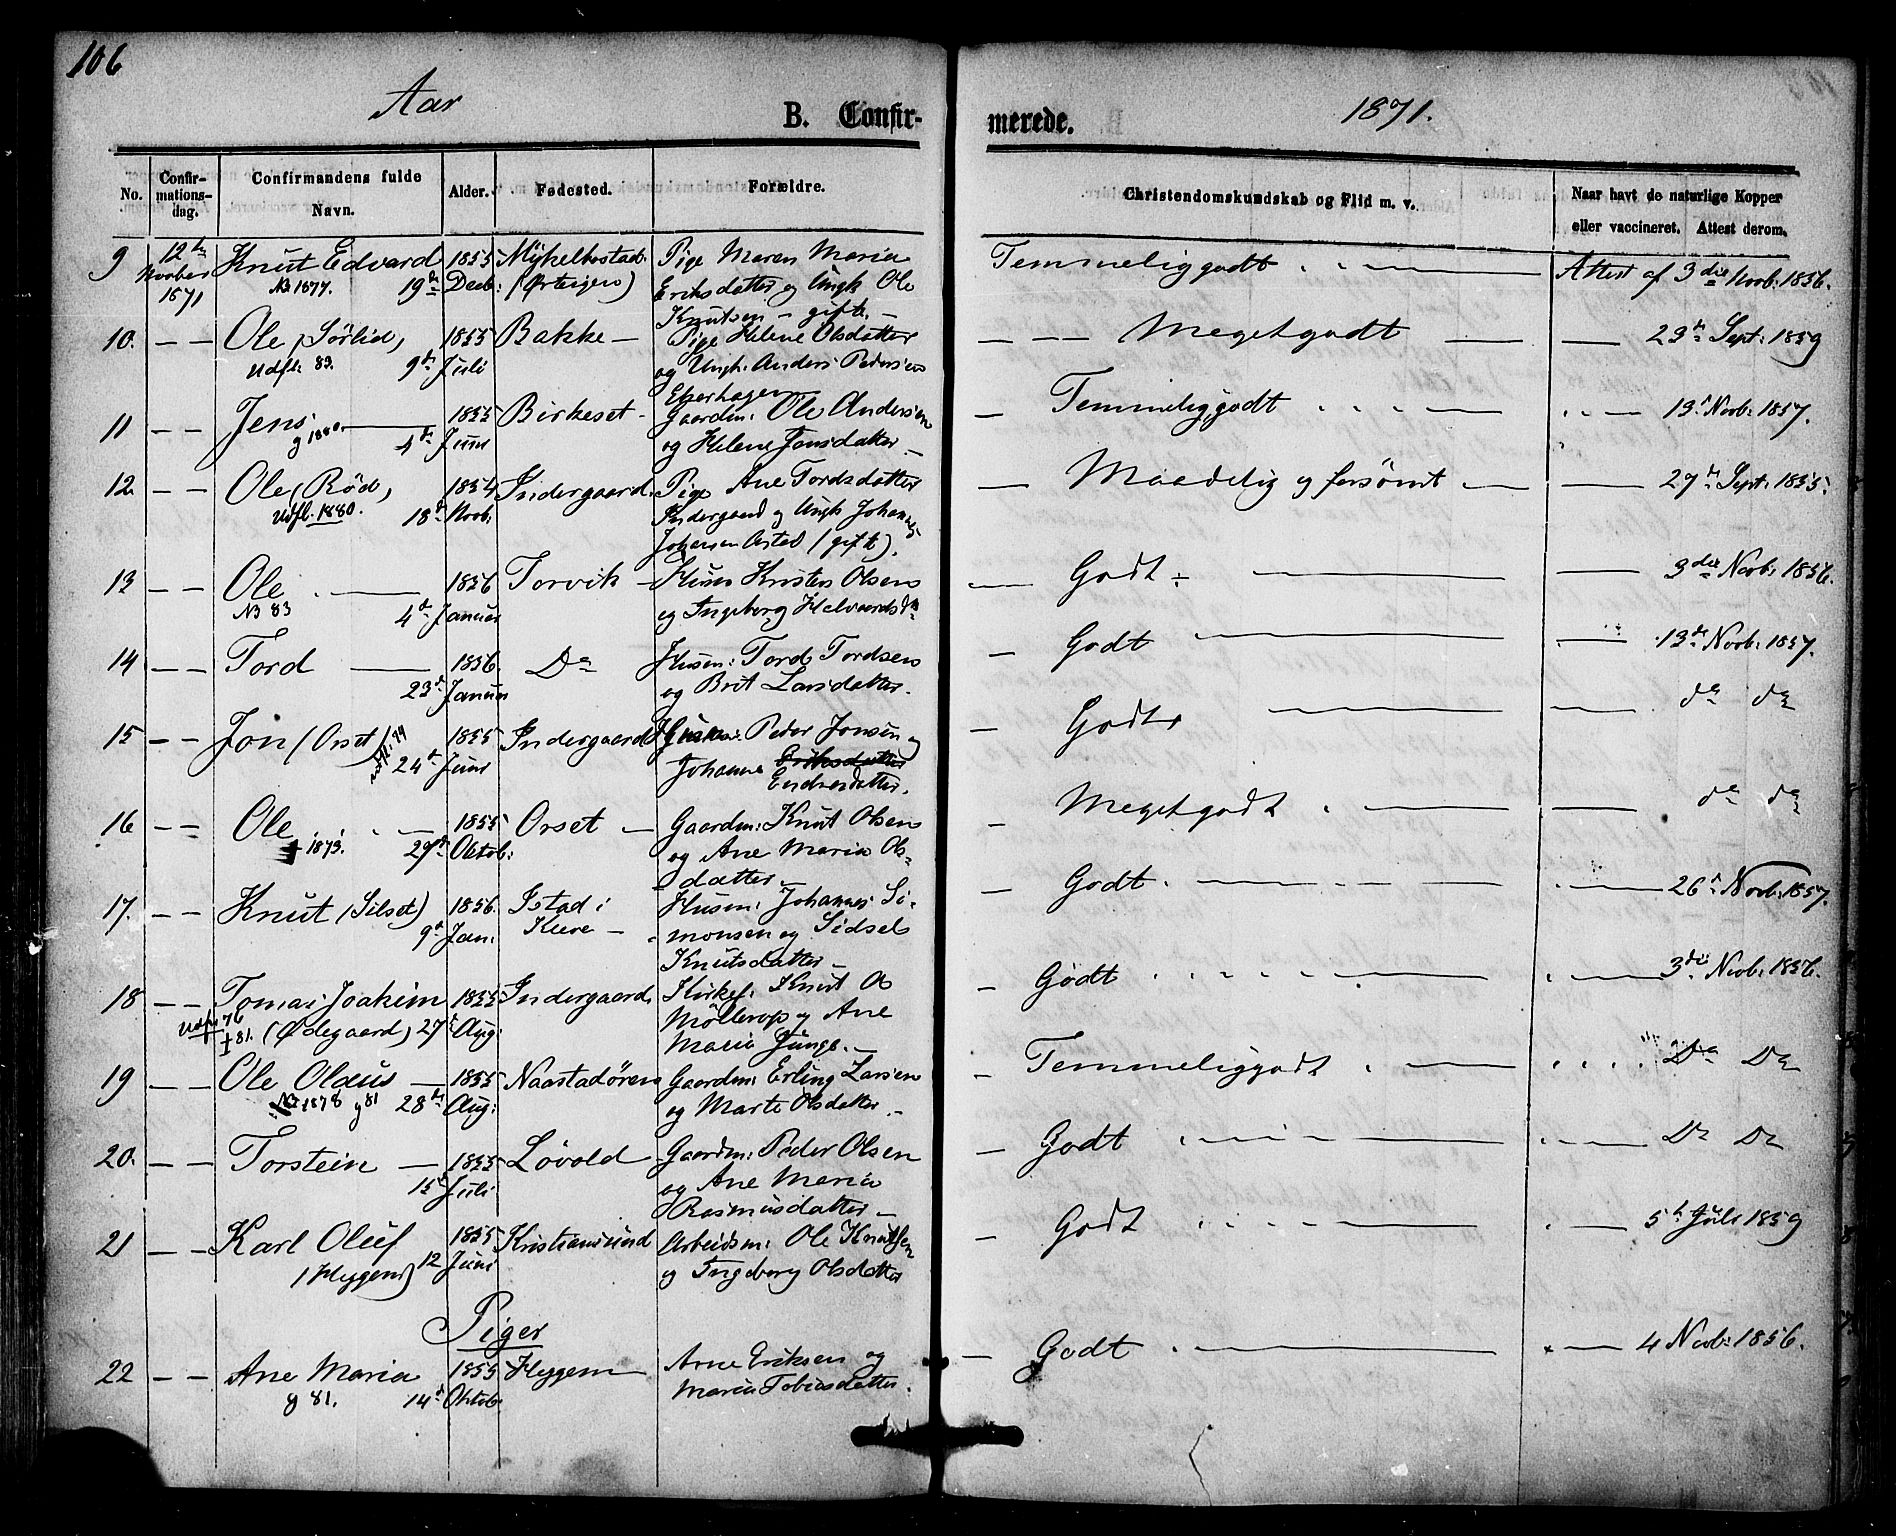 106
Aar
B. Confir-
merede.
1871.
No.
Confir-
mations-
dag.
Confirmandens fulde
Navn.
Alder.
Fødested.
Forældre.
Christendomskundskab og Flid m. v.
Naar havt de naturlige Kopper
eller vaccineret. Attest derom.
9 12te Knut Edvard 1855 Myhelbostad Pige Maren Maria Temmeliggodt Attest af 3die Novb: 1856.
Novber N. 1877. 19de Decb: Eriksdatter og Ungk Ole
1871 Knutsen - gift. -
10. — — Ole (Sørlid) 1855 Bakke — Pige Helene Olsdatter — — — Megetgodt — — 23de Sept: 1859
Udfl. 83. 9de Juli og Ungk: Anders Pedersen
11 — — Jens 1855 Birkeset - Gaardm: Ole Andersen — Temmeliggodt 13de Novb: 1857.
g 1880. 4de Juni og Helene Jonsdatter —
12. — — Ole (Rød) 1854 Indergaard. Pige Ane Tordsdatter — Maadelig og forsømt — 27de Sept: 1855.
Udfl. 1880. 18de Novb: Indergaard og Ungk Johannes
Johansen (gift).
13 — — Ole 1856 Torvik — Husm Kristen Olsen — Godt — 3die Novb: 1856.
N 83 4de Januar og Ingeborg Halvardsd
14 — — Tord 1856. Do Husm: Tord Tordsen — Godt — 13de Novb: 1857.
23de Januar og Brit Larsdatter.
15 — — Jon (Orset) 1855 Indergaard Husm: Peder Jonsen og — Godt — do do
24de Juni Johanne Eriksdatter
Endresdatter.
16 — — Ole 1855 Orset — Gaardm: Knut Olsen — Megetgodt — do do
† 1873. 29de Oktob: og Ane Maria Ols-
datter —
17. — — Knut (Silset) 1856. Istad i Husm: Johannes Si- — Godt. — 26de Novb: 1857.
9de Jan: Kleve — monsen og Sidsel
Knutsdatter —
18 — — Tomas Joakim 1855 Indergaard Kirkes: Knut O — Godt — 3die Novb: 1856.
Udfl. 76 † 81. (Ødegaard) 27de Aug: Møllerop og Ane
Maria Junge. —
19 — — Ole Olaus — 1855 Naastadøren Gaardm: Erling Larsen — Temmeliggodt — Do Do
N 1878 g 81 28de Aug: og Marte Olsdatter —
20. — — Torstein — 1855 Løvold Gaardm: Peder Olsen — Godt — Do Do
15de Juli og Ane Maria
Rasmusdatter —
21 — — Karl Oluf 1855 Kristiansund Arbeidsm: Ole Knutsen — Godt — 5te Juli 1859
(Hyggen) 12 Juni og Ingeborg Olsdatter
Piger
22 — — Ane Maria 1855 Hyggen — Arne Eriksen og — Godt — 4 Novb: 1856.
g 81. 14de Oktob: Maria Tobiasdatter.